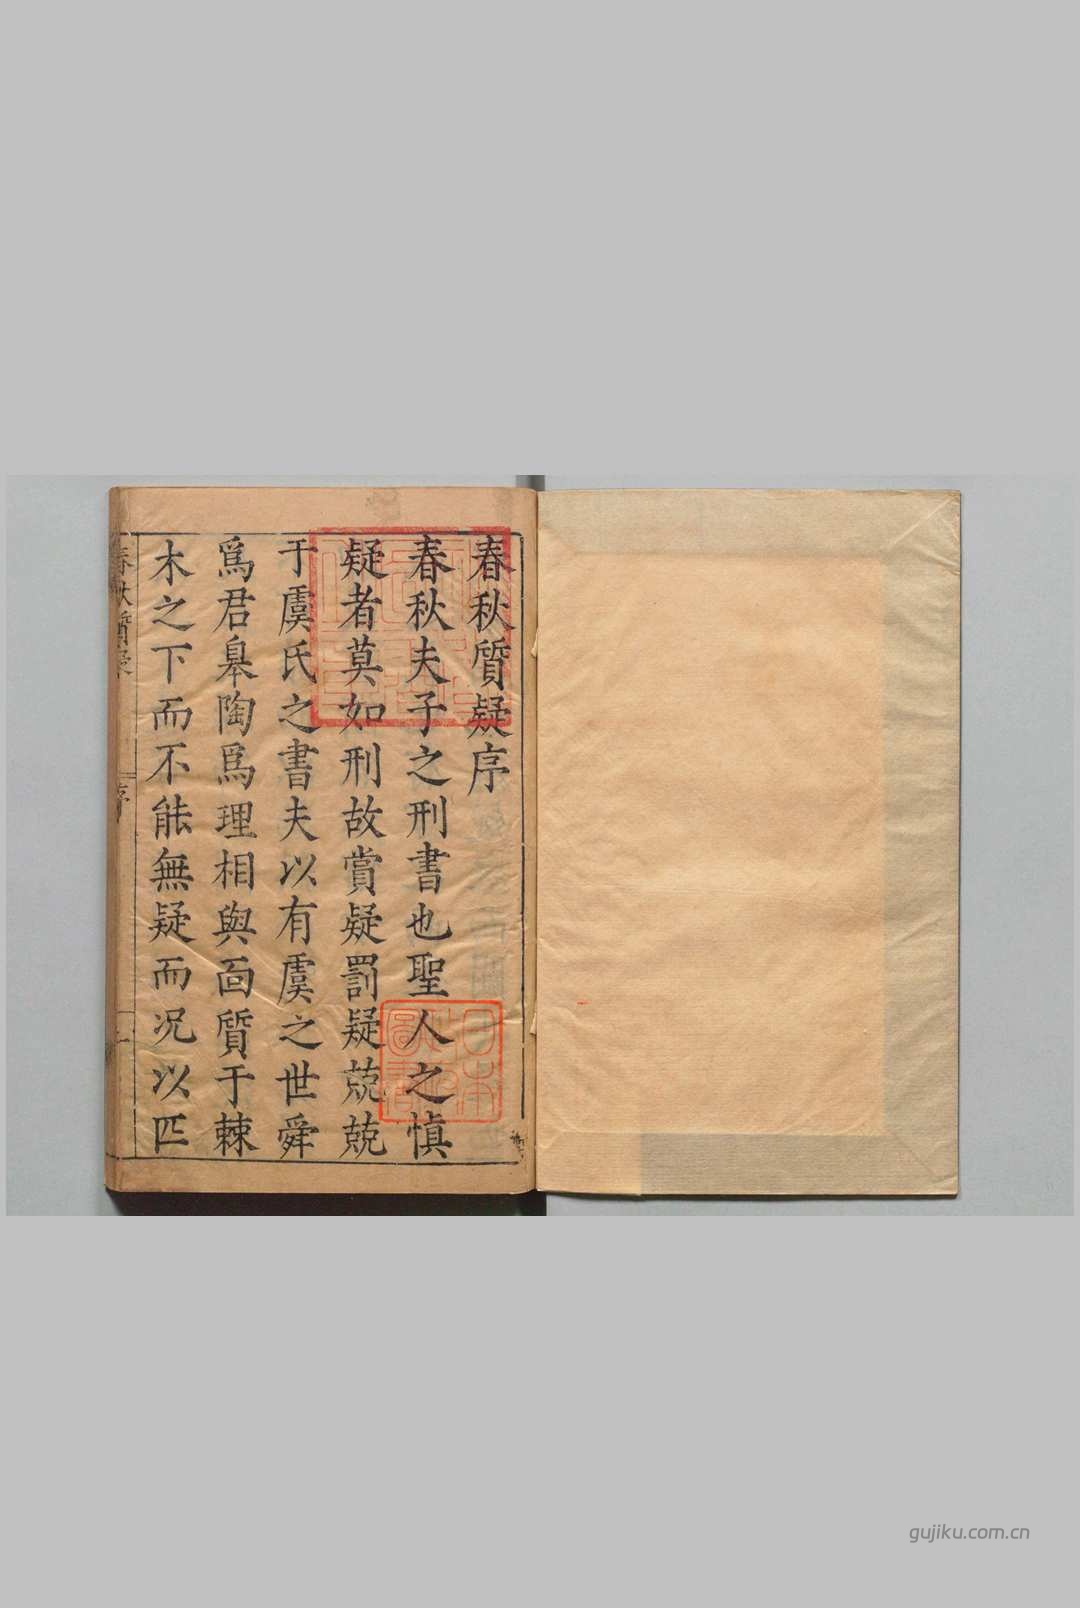 春秋質疑序
春秋夫子之刑書也聖人之慎
疑者莫如刑故賞疑罰疑兢兢
于虞氏之書夫以有虞之世舜
爲君皋陶爲理相與面質于棘
木之下而不能無疑而况以匹
春秋質疑
序
日本
圖書
gujiku.com.cn